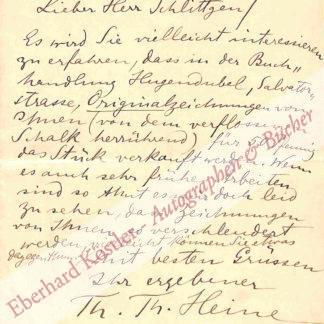 Lieber Herr Schlittgen!
Es wird Sie vielleicht interessieren
zu erfahren, dass in der Buch„
handlung Hugendubel, Salvator„
strasse, Originalzeichnungen von
Ihnen (von dem verflossenen
Schalk herrührend) für 50 Pfennig
das Stück verkauft werden. Wenn
es auch sehr frühe Arbeiten
sind so thut es mir doch leid
zu sehen, dass Zeichnungen
von Ihnen so verschleudert
werden, vielleicht können Sie etwas
dagegen thun. Mit besten Grüssen
Ihr ergebener
Th. Th. Heine
Eberhard Köstler Autographen & Bücher